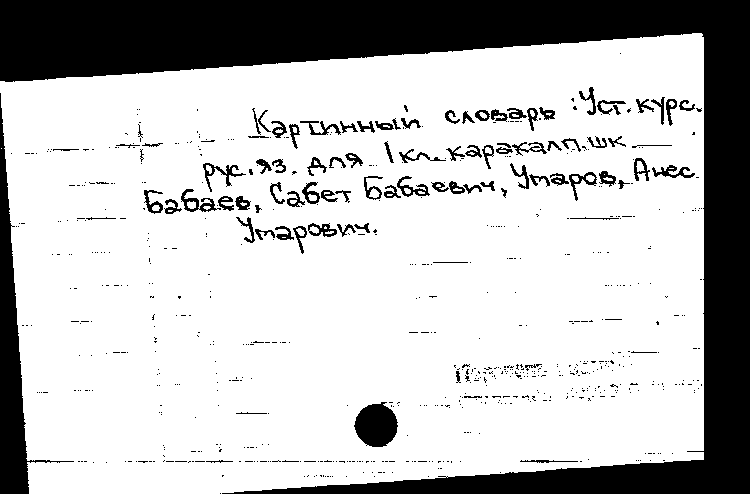 Картинный словарь : Уст. курс.
рус. яз. для 1 кл. каракалп. шк
Бабаев, Сабет Бабаевич, Умаров, Анес
Умарович.